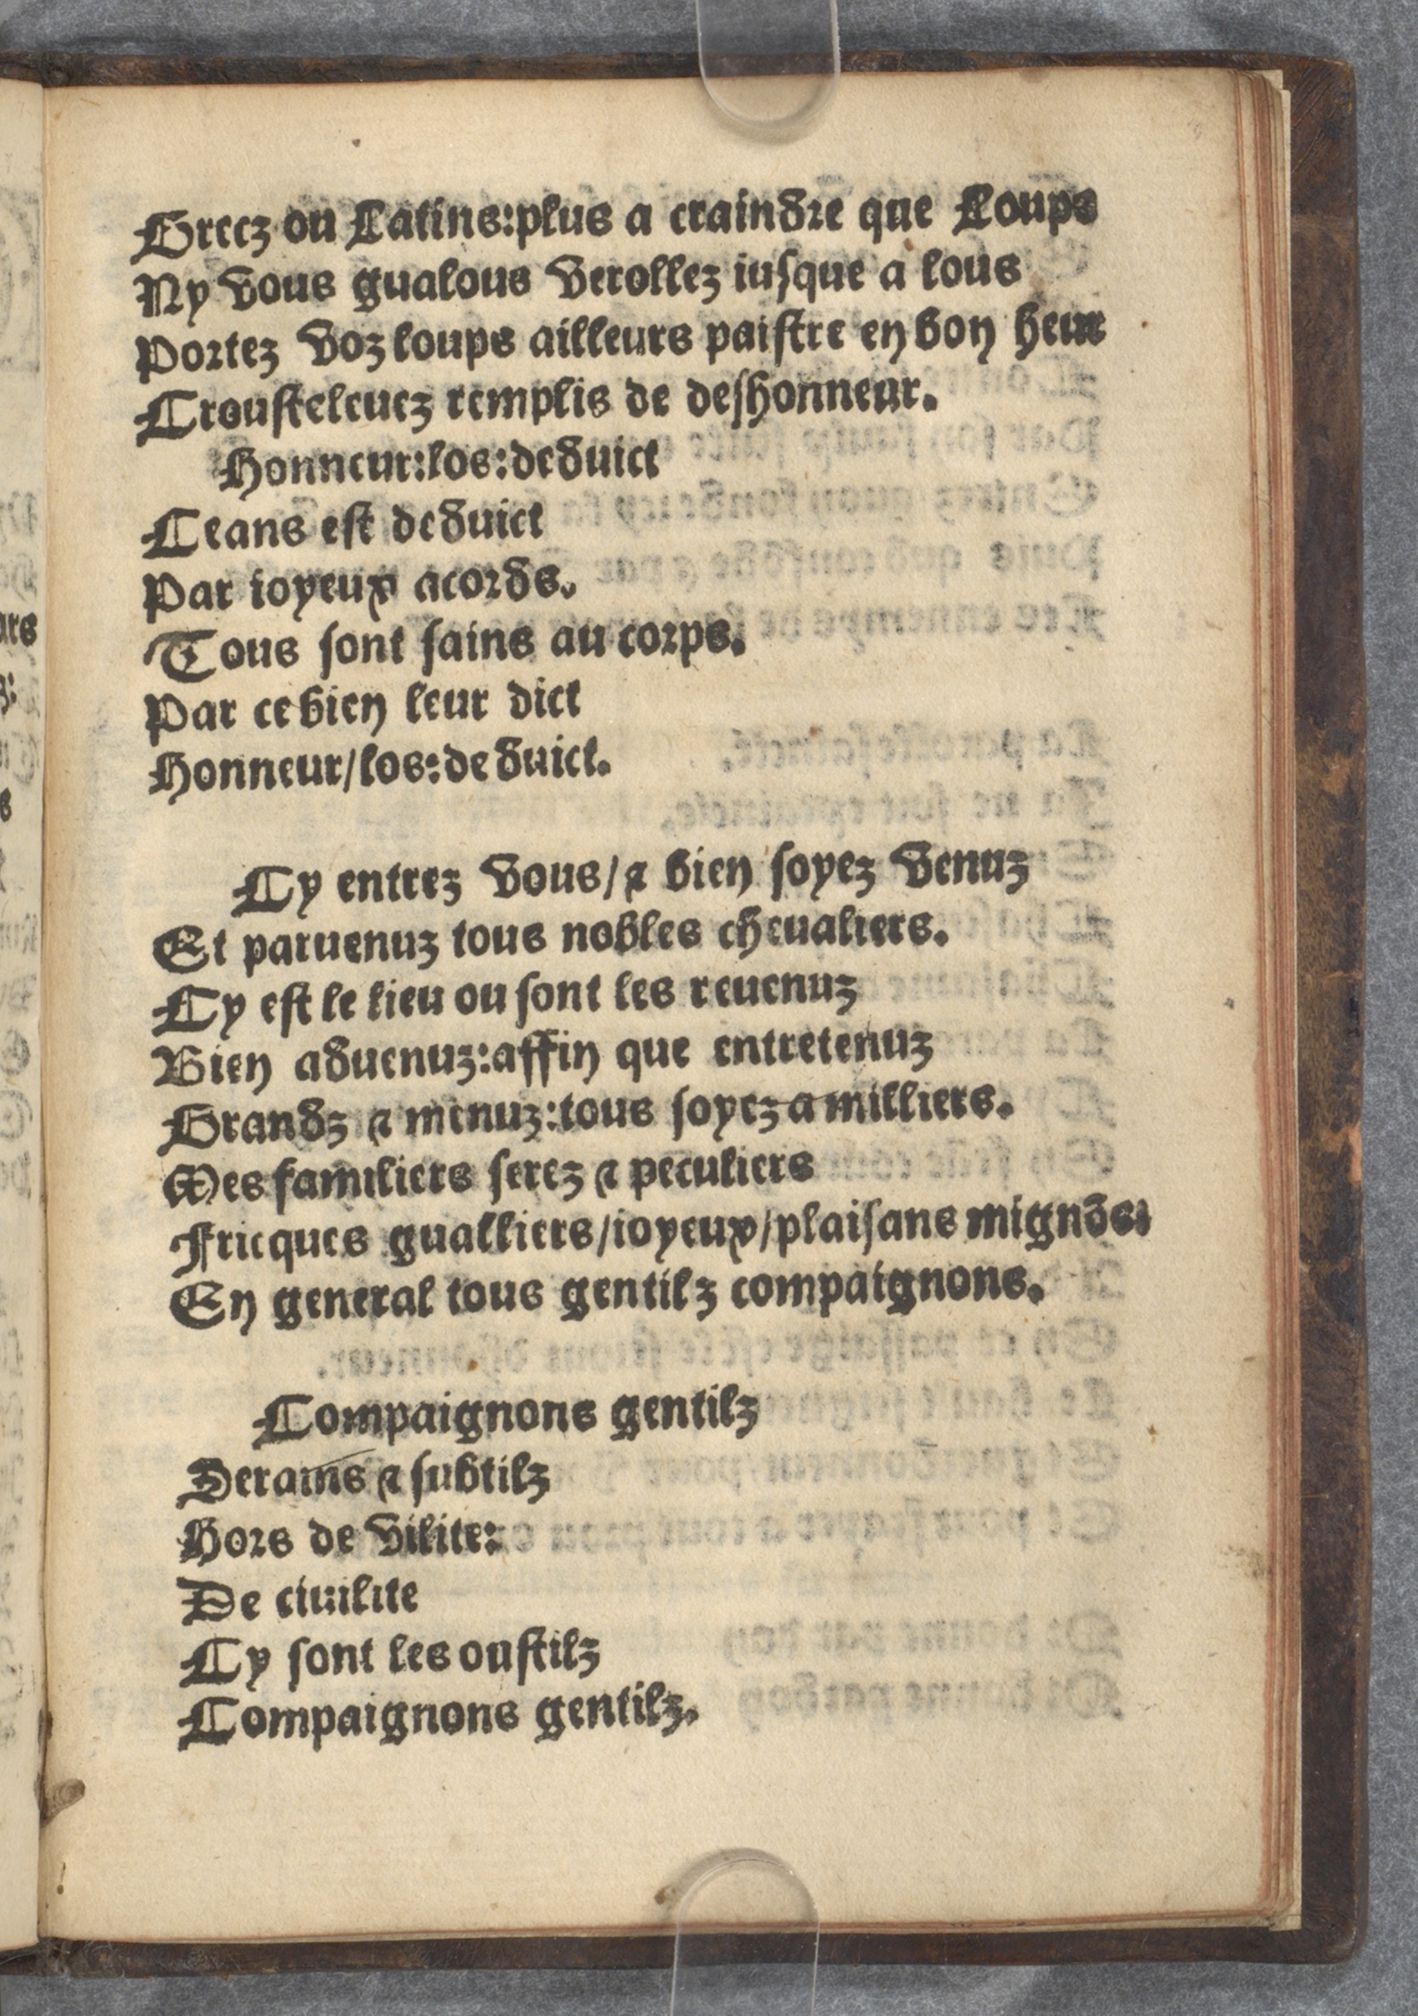 Grecz ou Latins:plus a craindre que Loups
Ny vous gualous verollez iusque a lous
Portez voz loups ailleurs paistre en bon heur
Croustelleuez remplis de deshonneur.
Honneur:los:deduict
Ceans est deduict
Par ioyeux acords.
Tous sont sains au corps.
Par ce bien leur dict
Honneur/los:deduict.
Cy entrez vous/& bien soyez venuz
Et paruenuz tous nobles cheualiers.
Cy est le lieu ou sont les reuenuz
Bien aduenuz:affin que entretenuz
Grandz & menuz:tous soyez a milliers.
Mes familiers serez & peculiers
Fricques gualliers/ioyeux/plaisans mignõs.
En general tous gentilz compaignons.
Compaignons gentilz
Serains & subtilz
Hors de vilite:
De ciuilite
Cy sont les oustilz
Compaignons gentilz.